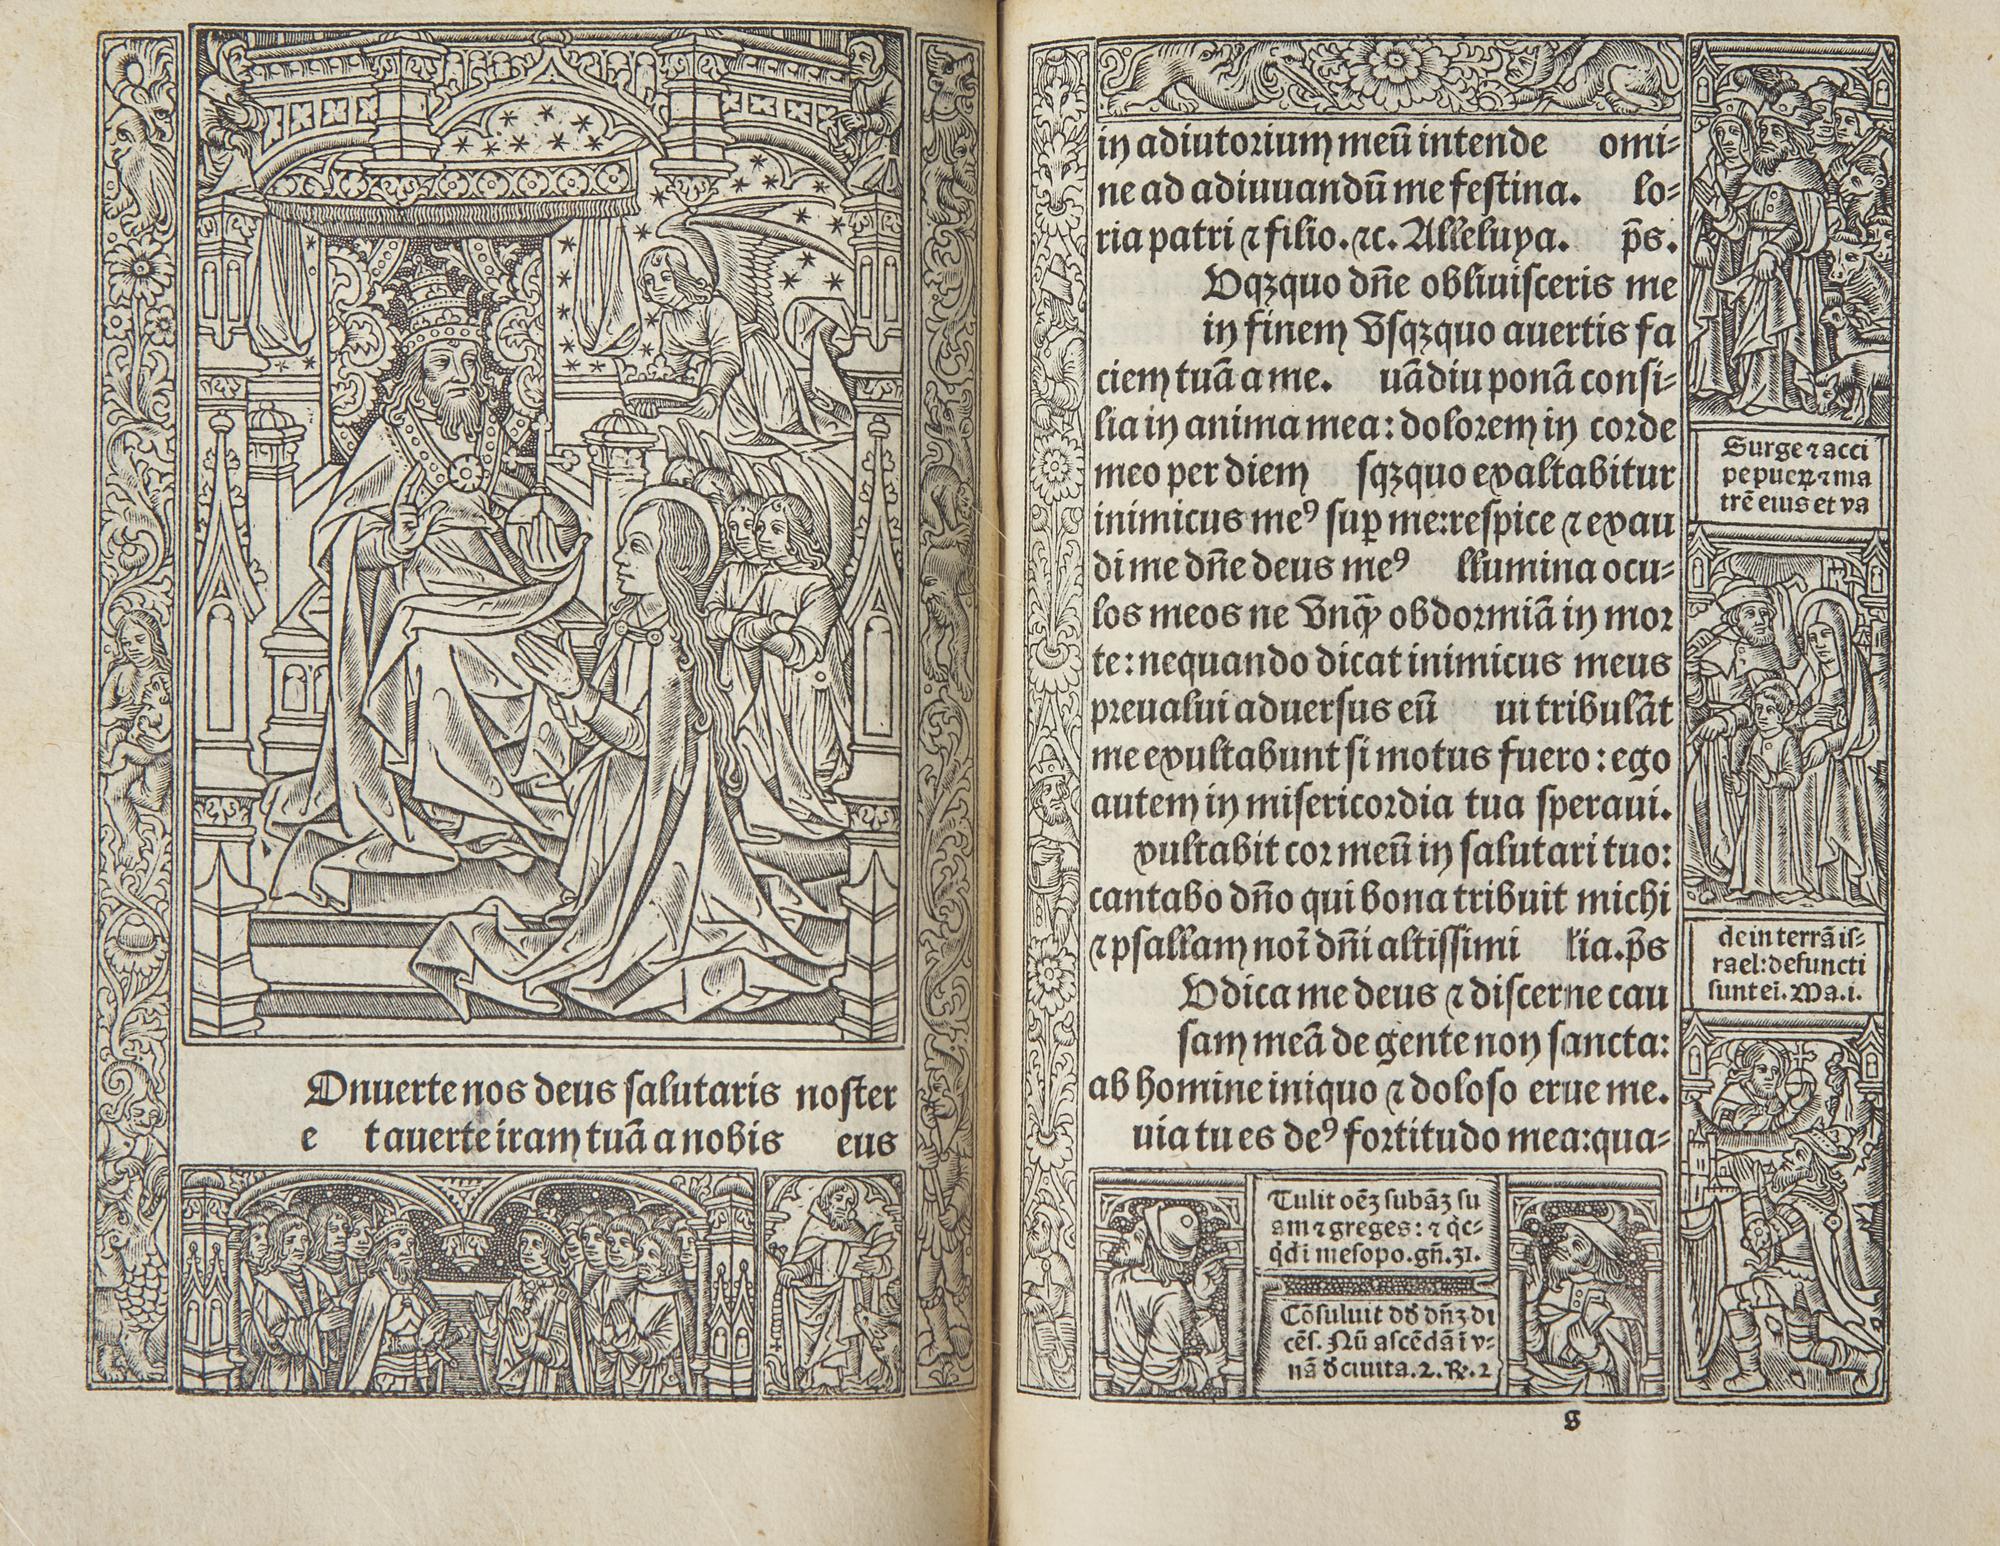 Onuerte nos deus salutaris noster
e t auerte iram tuā a nobis eus
in adiutorium meū intende omi-
ne ad adiuuandū me festina. lo-
ria patri ⁊ filio. ⁊c. Alleluya. p̄s.
Vsqꝫquo dn̄e obliuisceris me
in finem Vsqꝫquo auertis fa
ciem tuā a me. uādiu ponā consi-
lia in anima mea: dolorem in corde
meo per diem sqꝫquo exaltabitur
inimicus meꝰ sup me: respice ⁊ exau
di me dn̄e deus meꝰ llumina ocu-
los meos ne Vnq̄ obdormiā in mor
te: nequando dicat inimicus meus
preualui aduersus eū ui tribulāt
me exultabunt si motus fuero: ego
autem in misericordia tua speraui.
xultabit cor meū in salutari tuo:
cantabo dn̄o qui bona tribuit michi
⁊ psallam noī dn̄i altissimi lia. p̄s
Vdica me deus ⁊ discerne cau
sam meā de gente non sancta:
ab homine iniquo ⁊ doloso erue me.
uia tu es deꝰ fortitudo mea: qua-
Surge ⁊ acci
pe pueꝝ ⁊ ma
trē eius et va
de in terrā is-
rael: defuncti
sunt ei. Ma. i.
Tulit oēꝫ subāꝫ su
am ⁊ greges: ⁊ qc-
qd i mesopo. gn̄. 31.
Cōsuluit dd dn̄ꝫ di
cēs. Nū ascēdā i v-
nā d ciuita. 2. R. 2
s